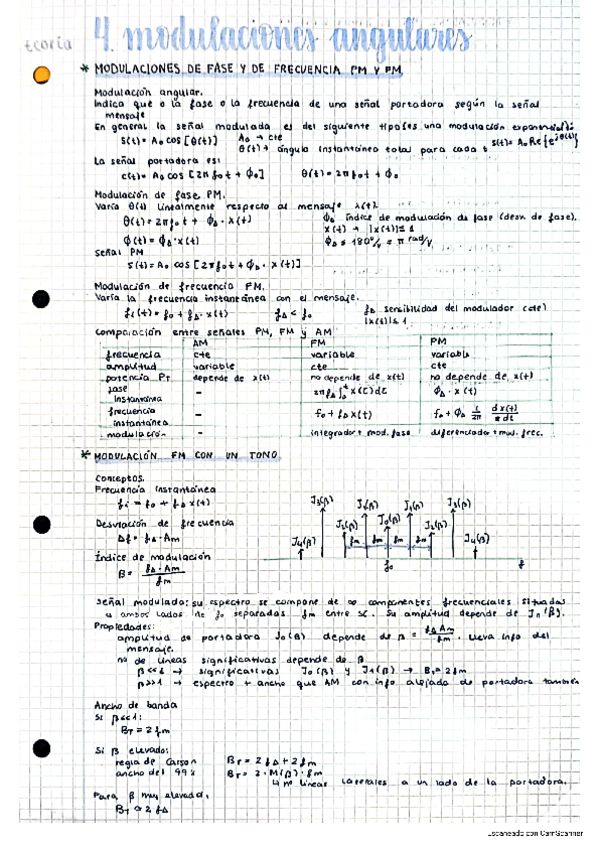 teoría
4. modulaciones angulares
* MODULACIONES DE FASE Y DE FRECUENCIA PM Y FM
Modulación angular.
Indica que o la fase o la frecuencia de una señal portadora según la señal
mensaje
En general la señal modulada es del siguiente tipo (es una modulación exponencial):
S(t) = A₀ cos [θ(t)] A₀ → cte s(t) = A₀ Re{e^jθ(t)}
θ(t) → ángulo instantáneo total para cada t
La señal portadora es:
c(t) = A₀ cos [2π f₀t + ϕ₀] θ(t) = 2π f₀t + ϕ₀
Modulación de fase PM.
Varía θ(t) linealmente respecto al mensaje x(t).
θ(t) = 2π f₀ t + ϕ_Δ · x(t) ϕ_Δ índice de modulación de fase (desv. de fase).
x(t) → |x(t)| ≤ 1
ϕ(t) = ϕ_Δ · x(t) ϕ_Δ ≤ 180°/v = π rad/v
Señal PM
s(t) = A₀ cos [2π f₀t + ϕ_Δ · x(t)]
Modulación de frecuencia FM.
Varía la frecuencia instantánea con el mensaje.
f_i(t) = f₀ + f_Δ · x(t) f_Δ < f₀ f_Δ sensibilidad del modulador (cte)
|x(t)| ≤ 1
Comparación entre señales PM, FM y AM
AM FM PM
frecuencia cte variable variable
amplitud variable cte cte
potencia P_T depende de x(t) no depende de x(t) no depende de x(t)
fase instantánea - 2π f_Δ ∫₀ᵗ x(τ) dτ ϕ_Δ · x(t)
frecuencia instantánea - f₀ + f_Δ x(t) f₀ + ϕ_Δ 1/2π dx(t)/dt
modulación - integrador + mod. fase diferenciador + mod. frec.
* MODULACIÓN FM CON UN TONO
Conceptos.
Frecuencia instantánea
f_i = f₀ + f_Δ x(t)
Desviación de frecuencia
Δf = f_Δ · Am
Índice de modulación
β = f_Δ · Am / fm
J₄(β) J₃(β) J₂(β) J₁(β) J₀(β) J₁(β) J₂(β) J₃(β) J₄(β)
fm fm fm fm
f₀ f
Señal modulada: su espectro se compone de ∞ componentes frecuenciales situadas
a ambos lados de f₀ separadas fm entre sí. Su amplitud depende de Jn(β).
Propiedades:
amplitud de portadora J₀(β) depende de β = f_Δ Am / fm. Lleva info del
mensaje.
no de líneas significativas depende de β
β << 1 → significativas J₀(β) y J₁(β) → B_T = 2fm
β >> 1 → espectro + ancho que AM con info alejada de portadora también
Ancho de banda
Si β << 1:
B_T = 2 fm
Si β elevado:
regla de Carson B_T = 2 f_Δ + 2 fm
ancho del 99% B_T = 2 · M(β) · fm
↳ nº líneas laterales a un lado de la portadora.
Para β muy elevado,
B_T ≃ 2 f_Δ
Escaneado con CamScanner